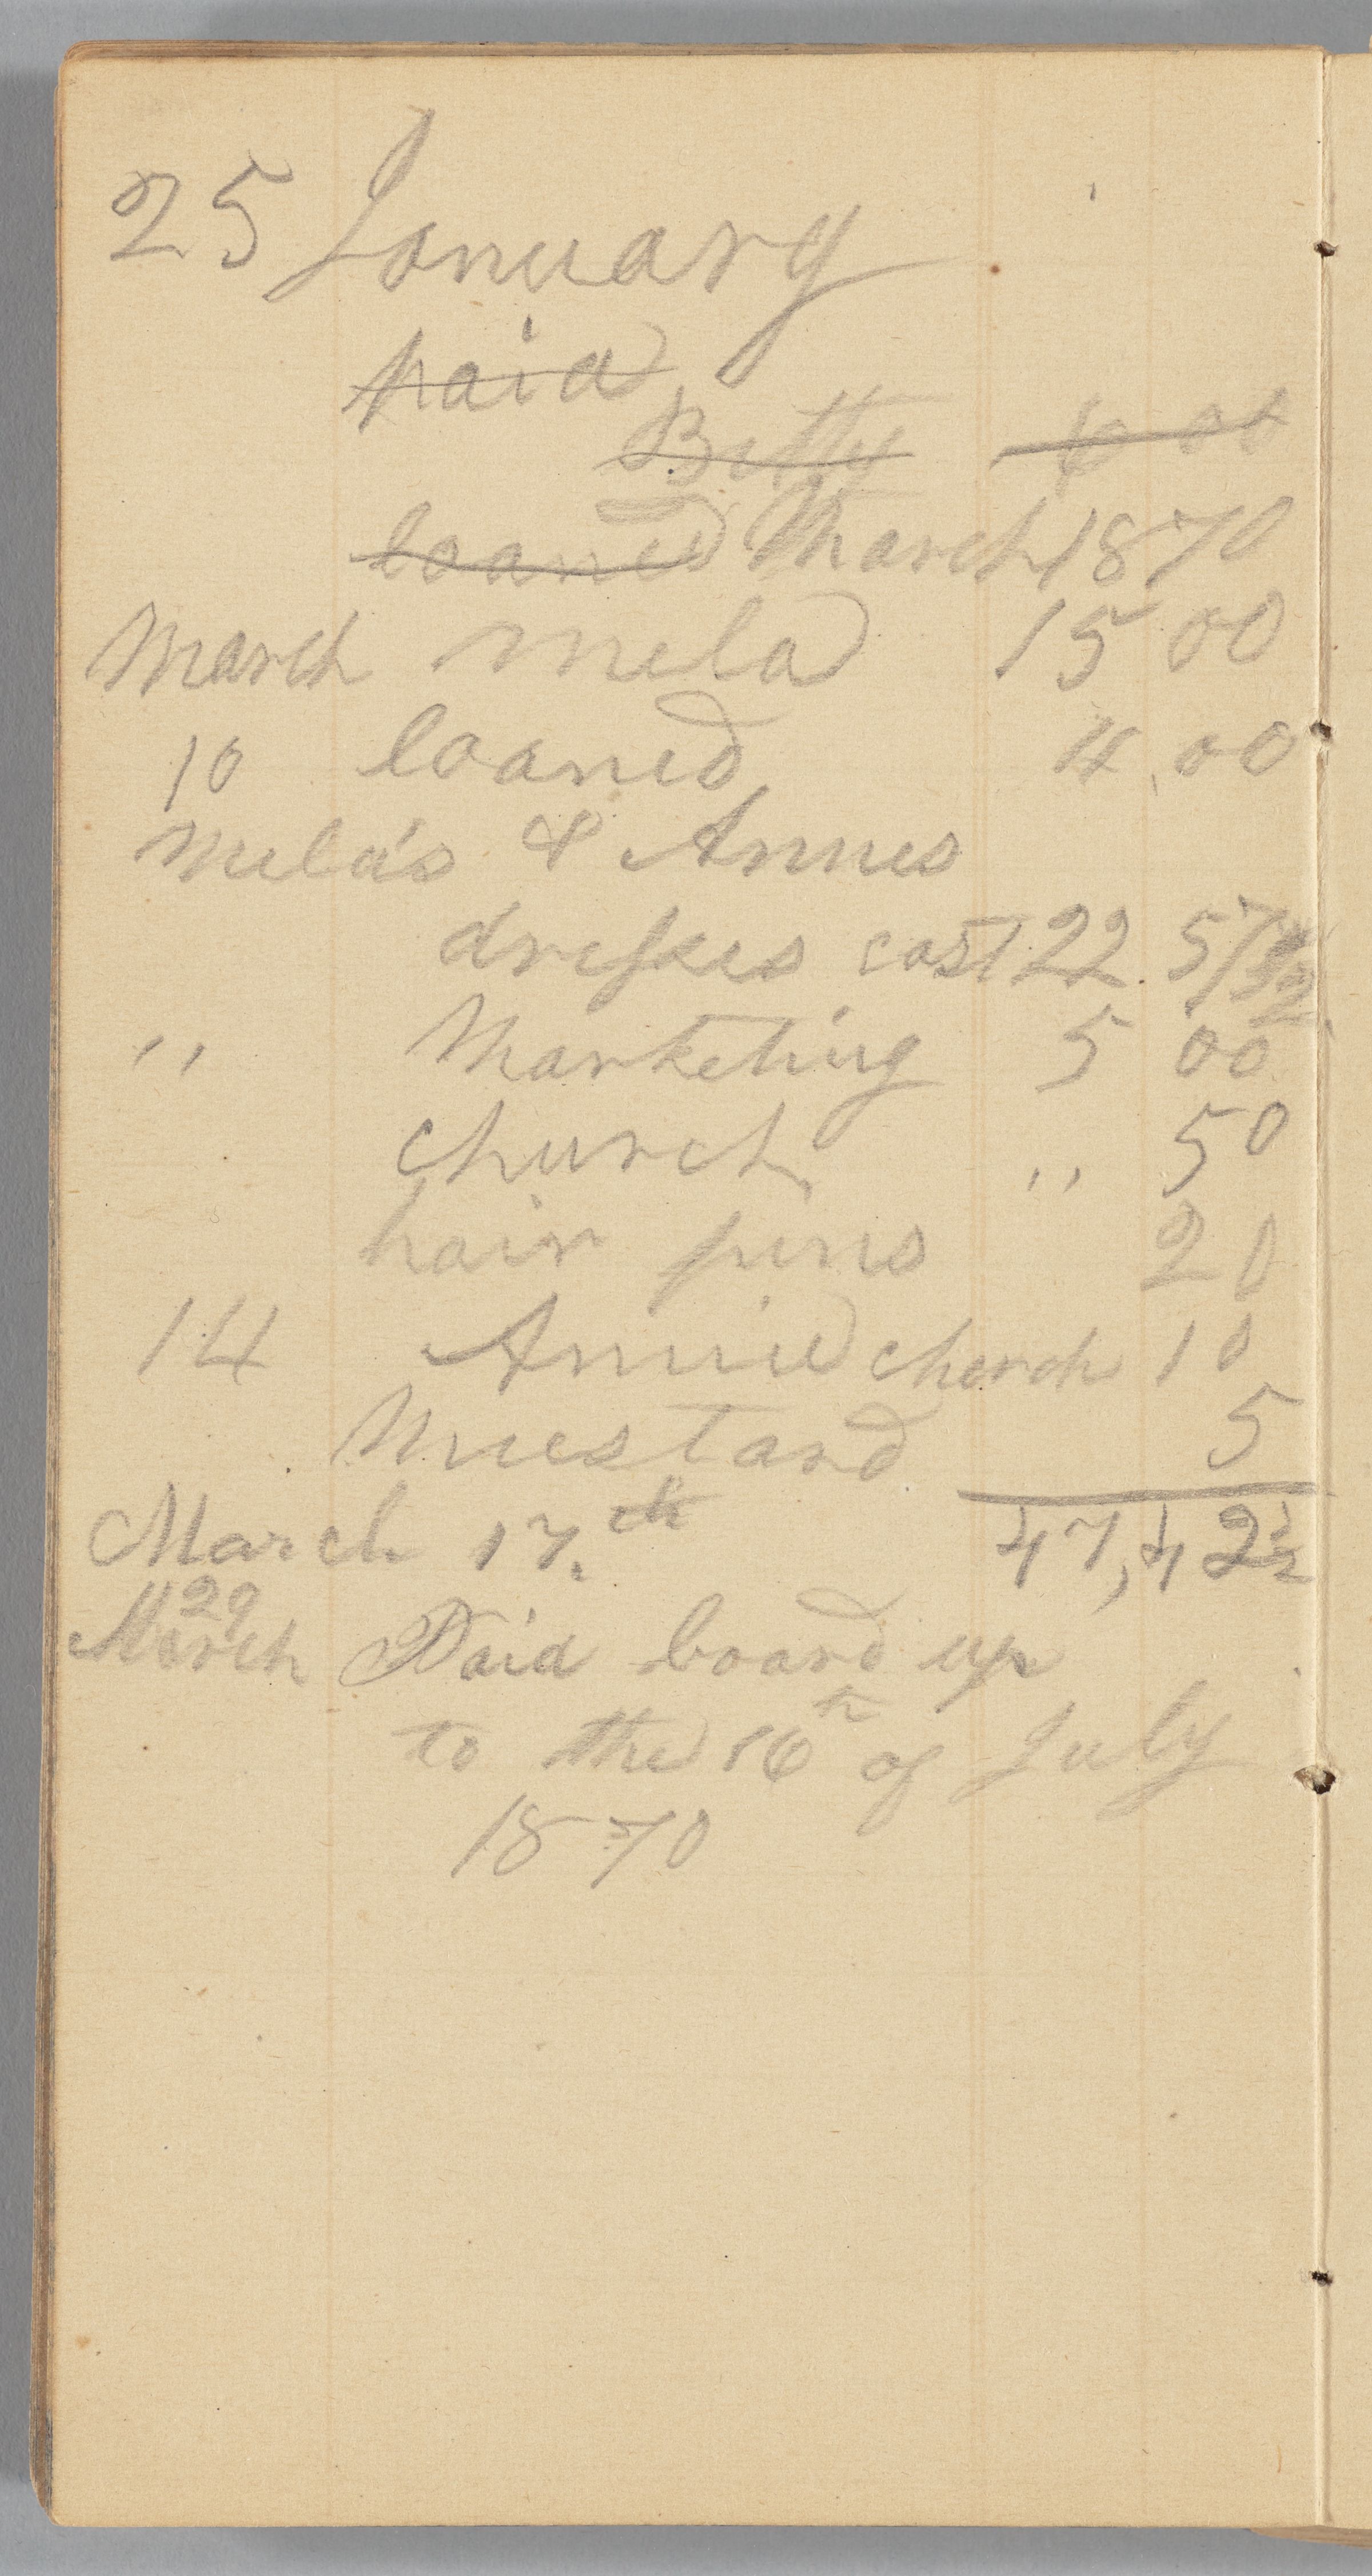 25 January
paid
Betty 6 00
loaned March 1870
March mela 15 00
10 loaned 4 00
Mela's & Annes
dresses cost 22. 57 1/2
" Marketing 5 00
church " 50
hair pins 20
14 Annie church 10
Mustard 5
March 17.th 47,42 1/2
29
March Paid board up
to the 16th of July
1870